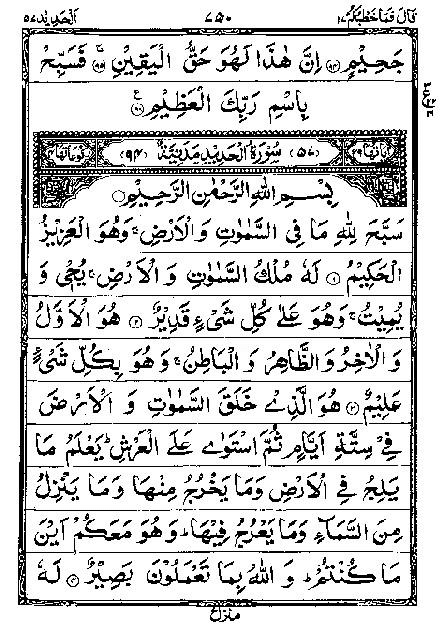 قال فما خطبكم ٢٧ ٧٥٠ الحديد ٥٧
جَحِيْمٍ ﴿٩٤﴾ اِنَّ هٰذَا لَهُوَ حَقُّ الْيَقِيْنِ ﴿٩٥﴾ فَسَبِّحْ
بِاسْمِ رَبِّكَ الْعَظِيْمِ ﴿٩٦﴾
اٰيَاتُهَا ٢٩ ﴿٥٧﴾ سُوْرَةُ الْحَدِيْدِ مَدَنِيَّةٌ ﴿٩٤﴾ رُكُوْعَاتُهَا ٤
بِسْمِ اللهِ الرَّحْمٰنِ الرَّحِيْمِ
سَبَّحَ لِلّٰهِ مَا فِى السَّمٰوٰتِ وَ الْاَرْضِ ۚ وَهُوَ الْعَزِيْزُ
الْحَكِيْمُ ﴿١﴾ لَهٗ مُلْكُ السَّمٰوٰتِ وَ الْاَرْضِ ۚ يُحْيٖ وَ
يُمِيْتُ ۚ وَهُوَ عَلٰى كُلِّ شَىْءٍ قَدِيْرٌ ﴿٢﴾ هُوَ الْاَوَّلُ
وَ الْاٰخِرُ وَ الظَّاهِرُ وَ الْبَاطِنُ ۚ وَ هُوَ بِكُلِّ شَىْءٍ
عَلِيْمٌ ﴿٣﴾ هُوَ الَّذِىْ خَلَقَ السَّمٰوٰتِ وَ الْاَرْضَ
فِىْ سِتَّةِ اَيَّامٍ ثُمَّ اسْتَوٰى عَلَى الْعَرْشِ ؕ يَعْلَمُ مَا
يَلِجُ فِى الْاَرْضِ وَمَا يَخْرُجُ مِنْهَا وَمَا يَنْزِلُ
مِنَ السَّمَآءِ وَمَا يَعْرُجُ فِيْهَا ؕ وَ هُوَ مَعَكُمْ اَيْنَ
مَا كُنْتُمْ ؕ وَ اللهُ بِمَا تَعْمَلُوْنَ بَصِيْرٌ ﴿٤﴾ لَهٗ
منزل